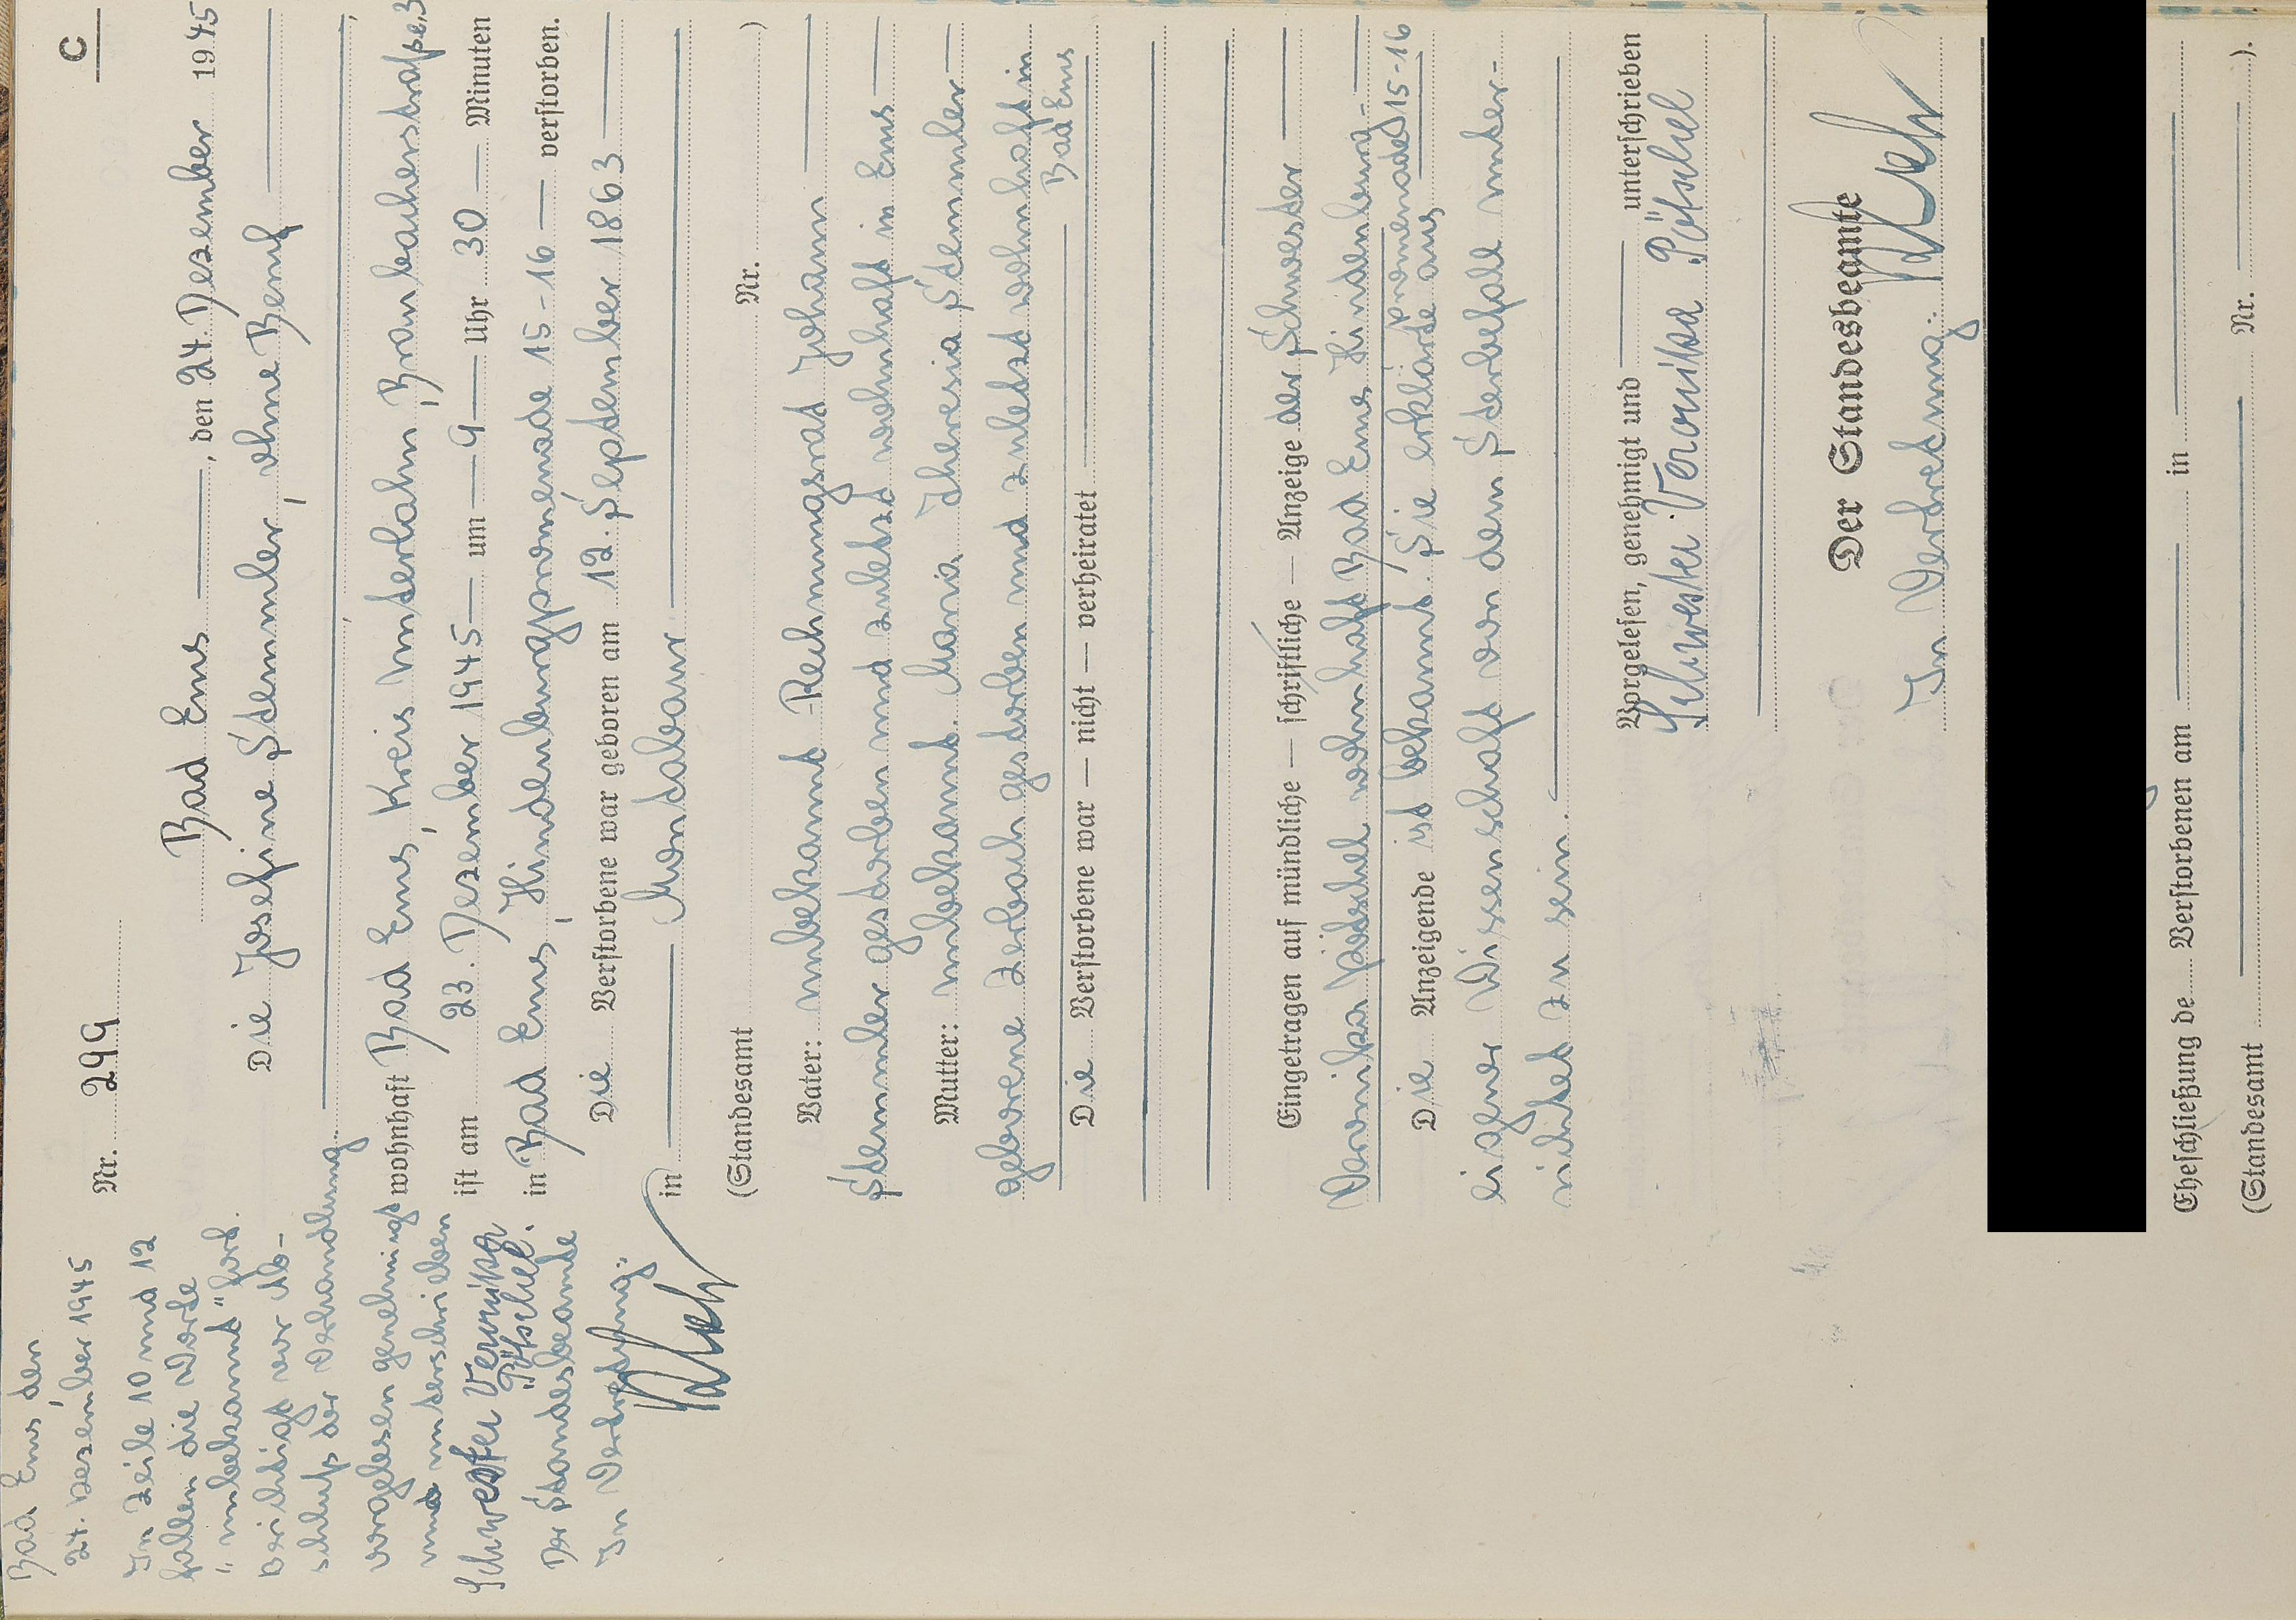 C
Nr. 299
Bad Ems, den 24. Dezember 1945
Die Josefine Stemmler, ohne Beruf
wohnhaft Bad Ems, Kreis Unterlahn, Braubacherstraße,3
ist am 23. Dezember 1945 um 9 Uhr 30 Minuten
in Bad Ems, Hindenburgpromenade 15-16 verstorben.
Die Verstorbene war geboren am 12. September 1863
in Montabaur
(Standesamt Nr. )
Vater: unbekannt Rechnungsrat Johann
Stemmler gestorben und zuletzt wohnhaft in Ems
Mutter: unbekannt. Maria Theresia Stemmler
geborene Zerbach gestorben und zuletzt wohnhaft in
Bad Ems
Die Verstorbene war — nicht — verheiratet
Eingetragen auf mündliche — schriftliche — Anzeige der Schwester
Veronika Pötschel wohnhaft Bad Ems Hindenburg-
promenade 15-16
Die Anzeigende ist bekannt. Sie erklärte aus
eigener Wissenschaft von dem Sterbefall unter-
richtet zu sein.
Vorgelesen, genehmigt und unterschrieben
Schwester Veronika Pötschel
Der Standesbeamte
In Vertretung:
Eheschließung de Verstorbenen am in
(Standesamt Nr. ).
Bad Ems, den
24. Dezember 1945
In Zeile 10 und 12
fallen die Worte
"unbekannt" fort.
Berichtigt vor Ab-
schluß der Verhandlung.
vorgelesen genehmigt
und unterschrieben
Schwester Veronika
Pötschel.
Der Standesbeamte
In Vertretung: